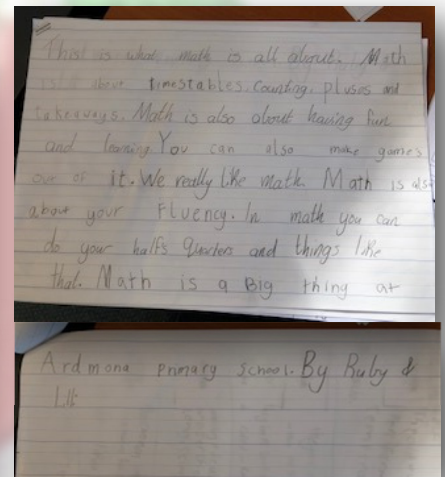 This is what math is all about. Math
is about timestables, Counting, pluses and
takeaways. Math is also about having fun
and learning. You can also make games
out of it. We really like math. Math is also
about your Fluency. In math you can
do your halfs Quarters and things like
that. Math is a Big thing at
Ardmona primary school. By Ruby &